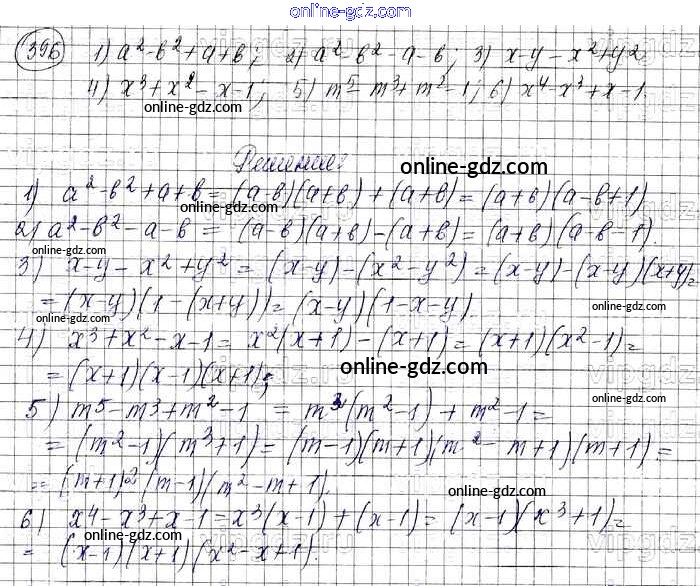 online-gdz.com
396 1) a²-b²+a+b; 2) a²-b²-a-b; 3) x-y-x²+y²
4) x³+x²-x-1; 5) m⁵-m³+m²-1; 6) x⁴-x³+x-1.
online-gdz.com online-gdz.com
Решение:
online-gdz.com
1) a²-b²+a+b = (a-b)(a+b)+(a+b) = (a+b)(a-b+1)
online-gdz.com
2) a²-b²-a-b = (a-b)(a+b)-(a+b) = (a+b)(a-b-1).
3) x-y-x²+y² = (x-y)-(x²-y²) = (x-y)-(x-y)(x+y) =
= (x-y)(1-(x+y)) = (x-y)(1-x-y)
online-gdz.com online-gdz.com
4) x³+x²-x-1 = x²(x+1)-(x+1) = (x+1)(x²-1) =
online-gdz.com
= (x+1)(x-1)(x+1);
online-gdz.com
5) m⁵-m³+m²-1 = m³(m²-1)+m²-1 =
= (m²-1)(m³+1) = (m-1)(m+1)(m²-m+1)(m+1) =
= (m+1)²(m-1)(m²-m+1).
online-gdz.com
6) x⁴-x³+x-1 = x³(x-1)+(x-1) = (x-1)(x³+1) =
= (x-1)(x+1)(x²-x+1).
online-gdz.com